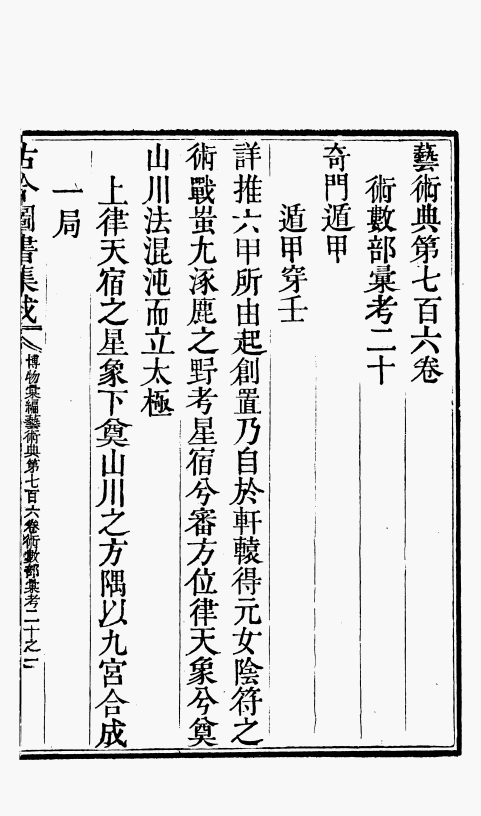 藝術典第七百六卷
術數部彙考二十
奇門遁甲
遁甲穿壬
詳推六甲所由起創置乃自於軒轅得元女陰符之
術戰蚩尤涿鹿之野考星宿兮審方位律天象兮奠
山川法混沌而立太極
上律天宿之星象下奠山川之方隅以九宮合成
一局
古今圖書集成
博物彙編藝術典第七百六卷術數部彙考二十之一